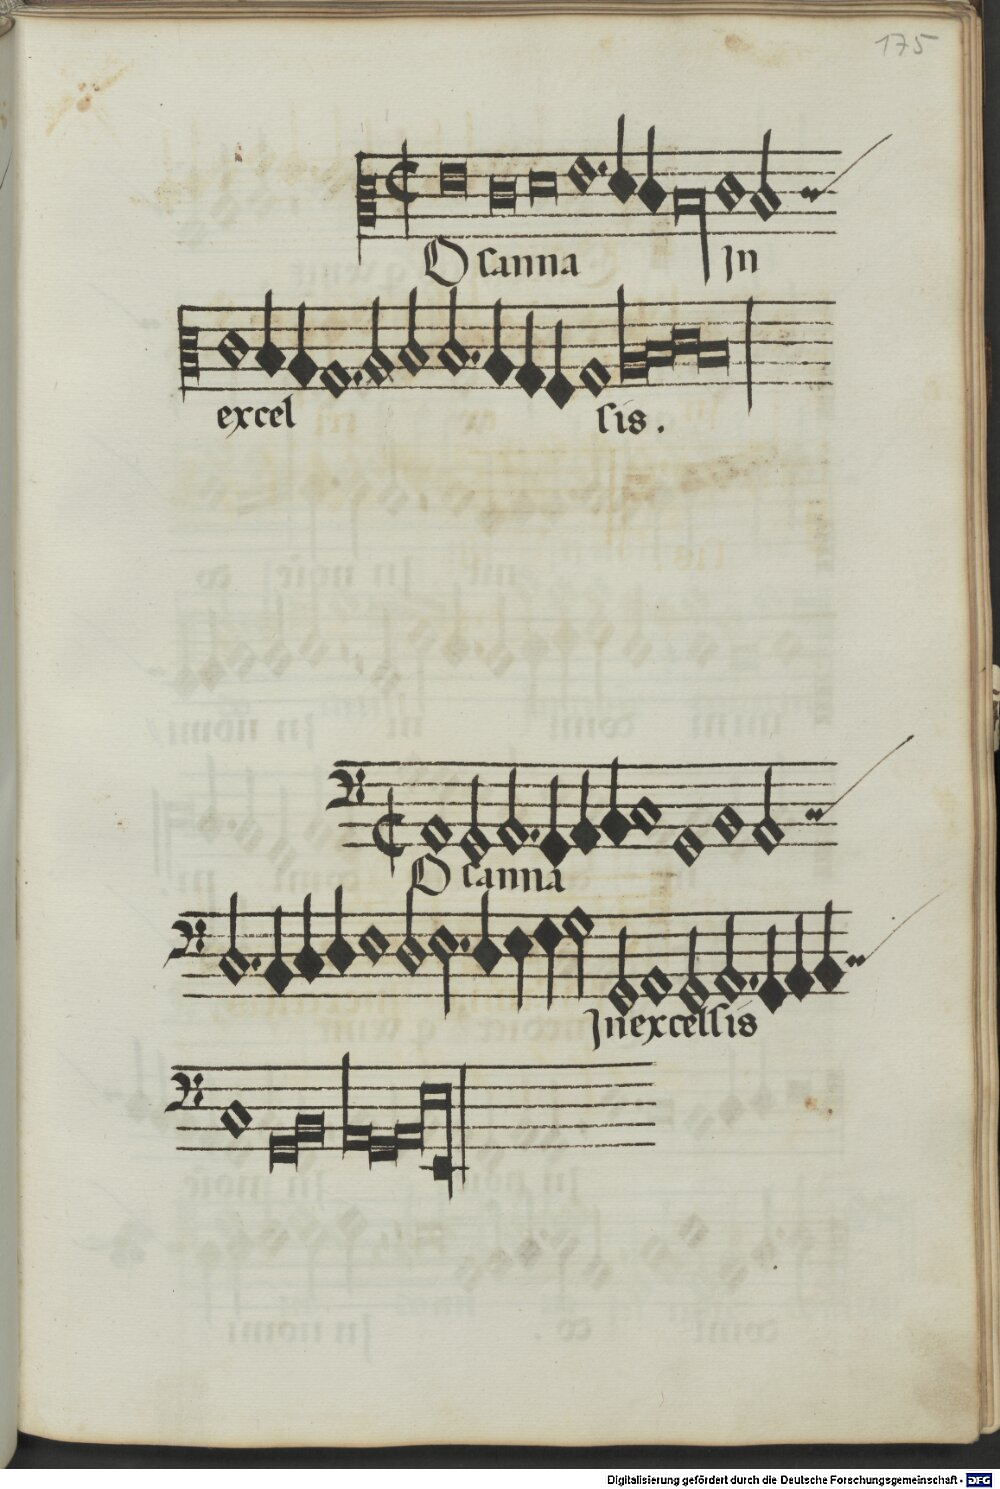 175
Osanna In
excel sis.
Osanna
In excelsis
Digitalisierung gefördert durch die Deutsche Forschungsgemeinschaft - DFG